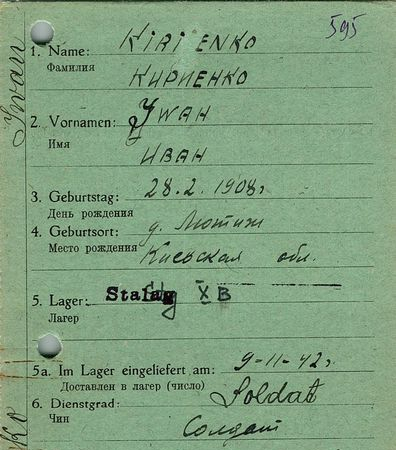 595
1. Name: KIRIENKO
Фамилия КИРИЕНКО
2. Vornamen: IWAH
Имя ИВАН
3. Geburtstag: 28.2.1908г
День рождения
4. Geburtsort: д. Лютиж
Место рождения Киевская обл.
5. Lager: Stalag X B
Лагер
5a. Im Lager eingeliefert am: 9-11-42г
Доставлен в лагер (число)
6. Dienstgrad: Soldat
Чин Солдат
Iwan